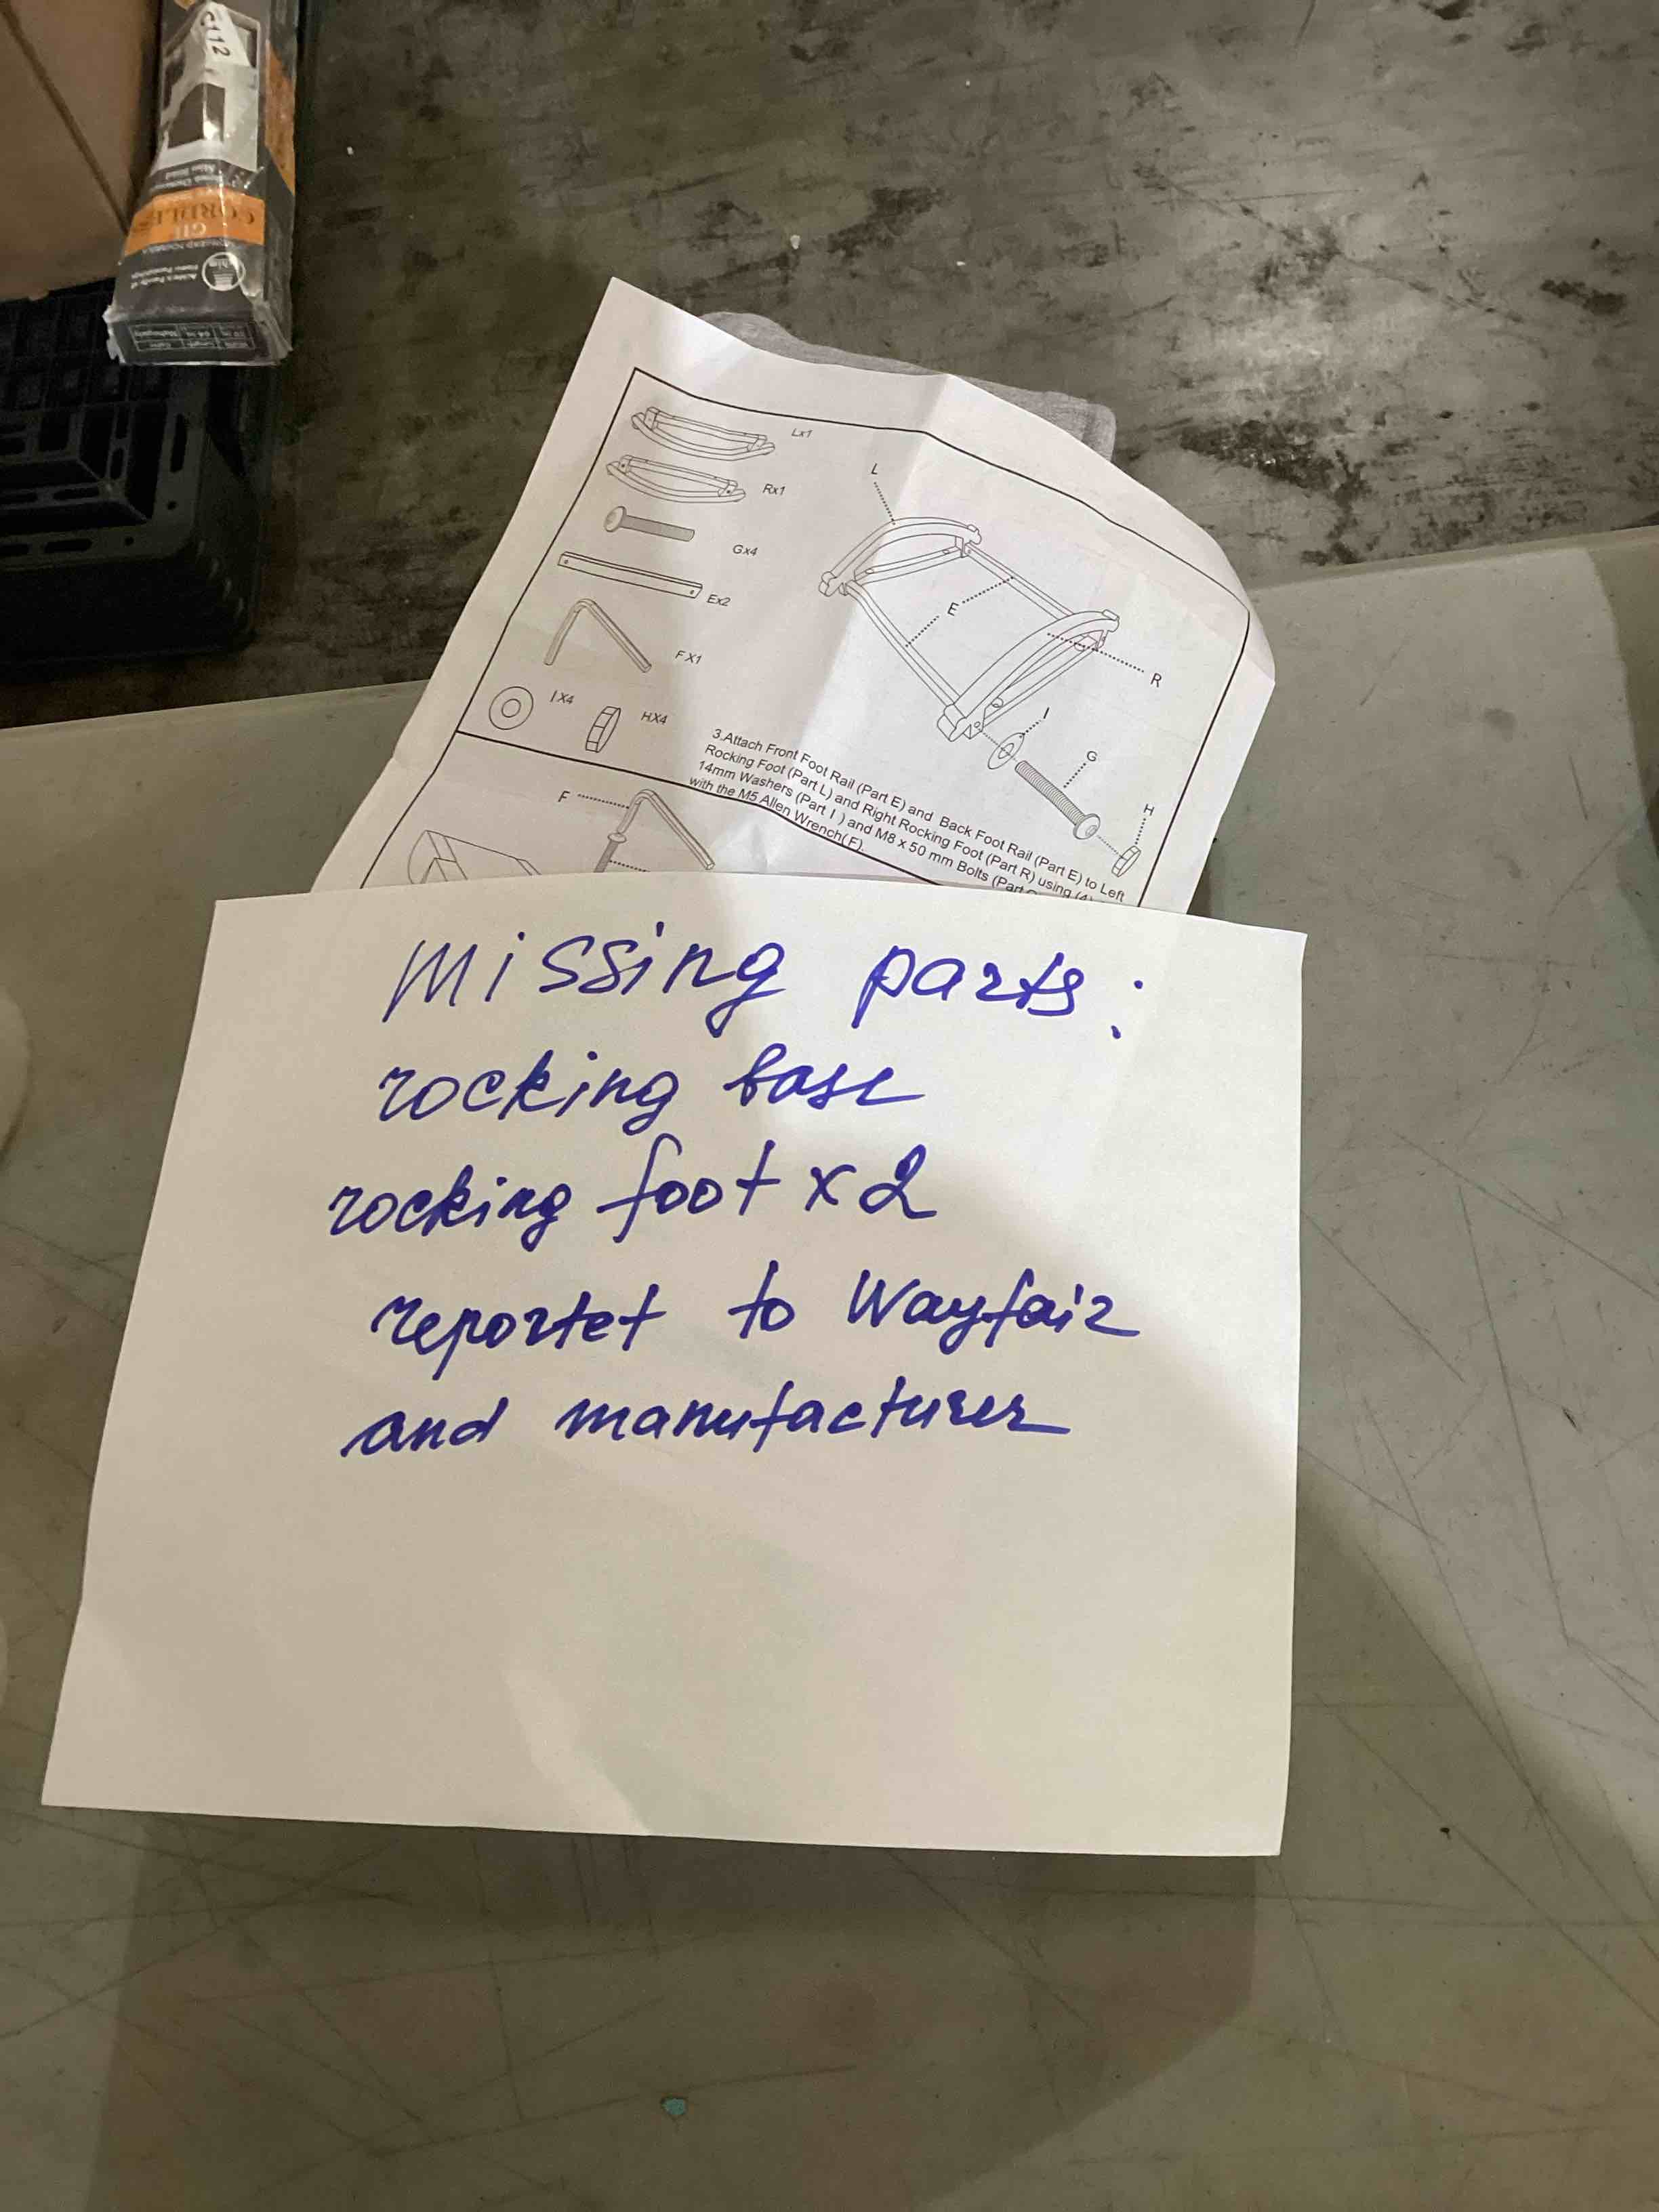 C112
CORDLESS
Lx1
Rx1
Gx4
Ex2
F X1
I X4
H X4
L
E
R
I
G
H
3.Attach Front Foot Rail (Part E) and Back Foot Rail (Part E) to Left
Rocking Foot (Part L) and Right Rocking Foot (Part R) using (4)
14mm Washers (Part I ) and M8 x 50 mm Bolts (Part
with the M5 Allen Wrench(F).
F
Missing parts:
rocking base
rocking foot x 2
reportet to Wayfair
and manufacturer